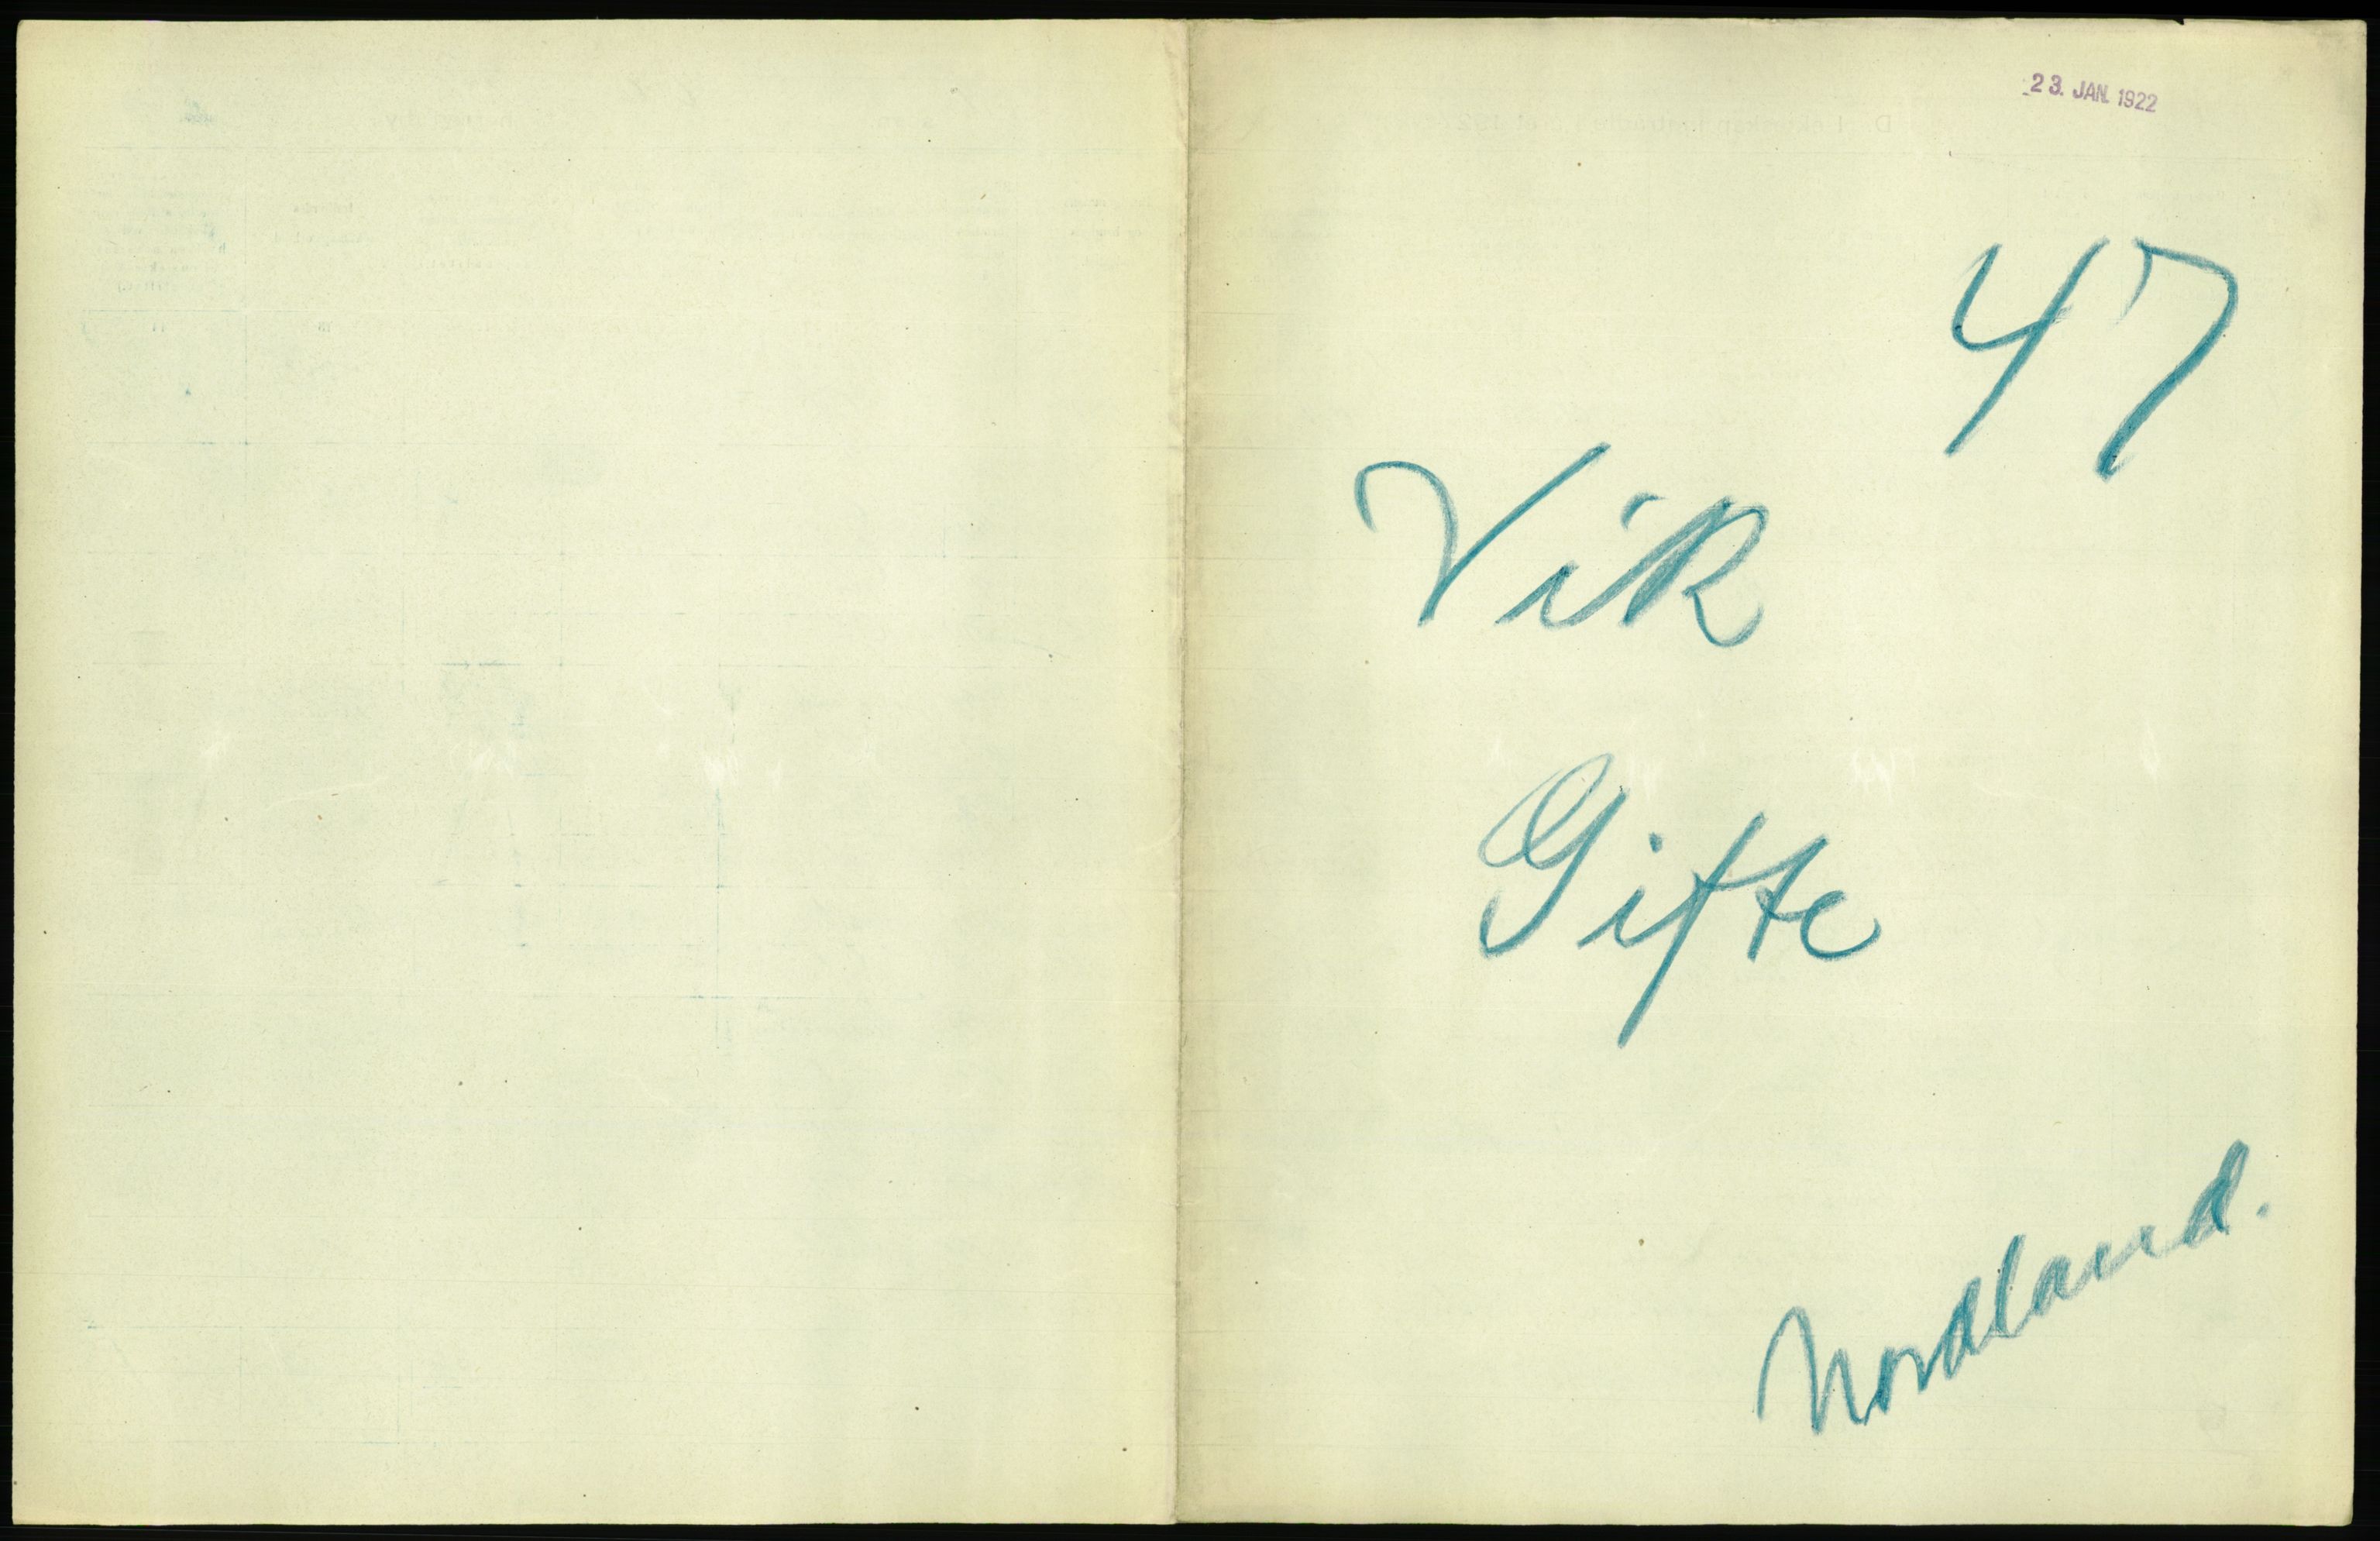 23. JAN. 1922
47
Vik
Gifte
Nordland.